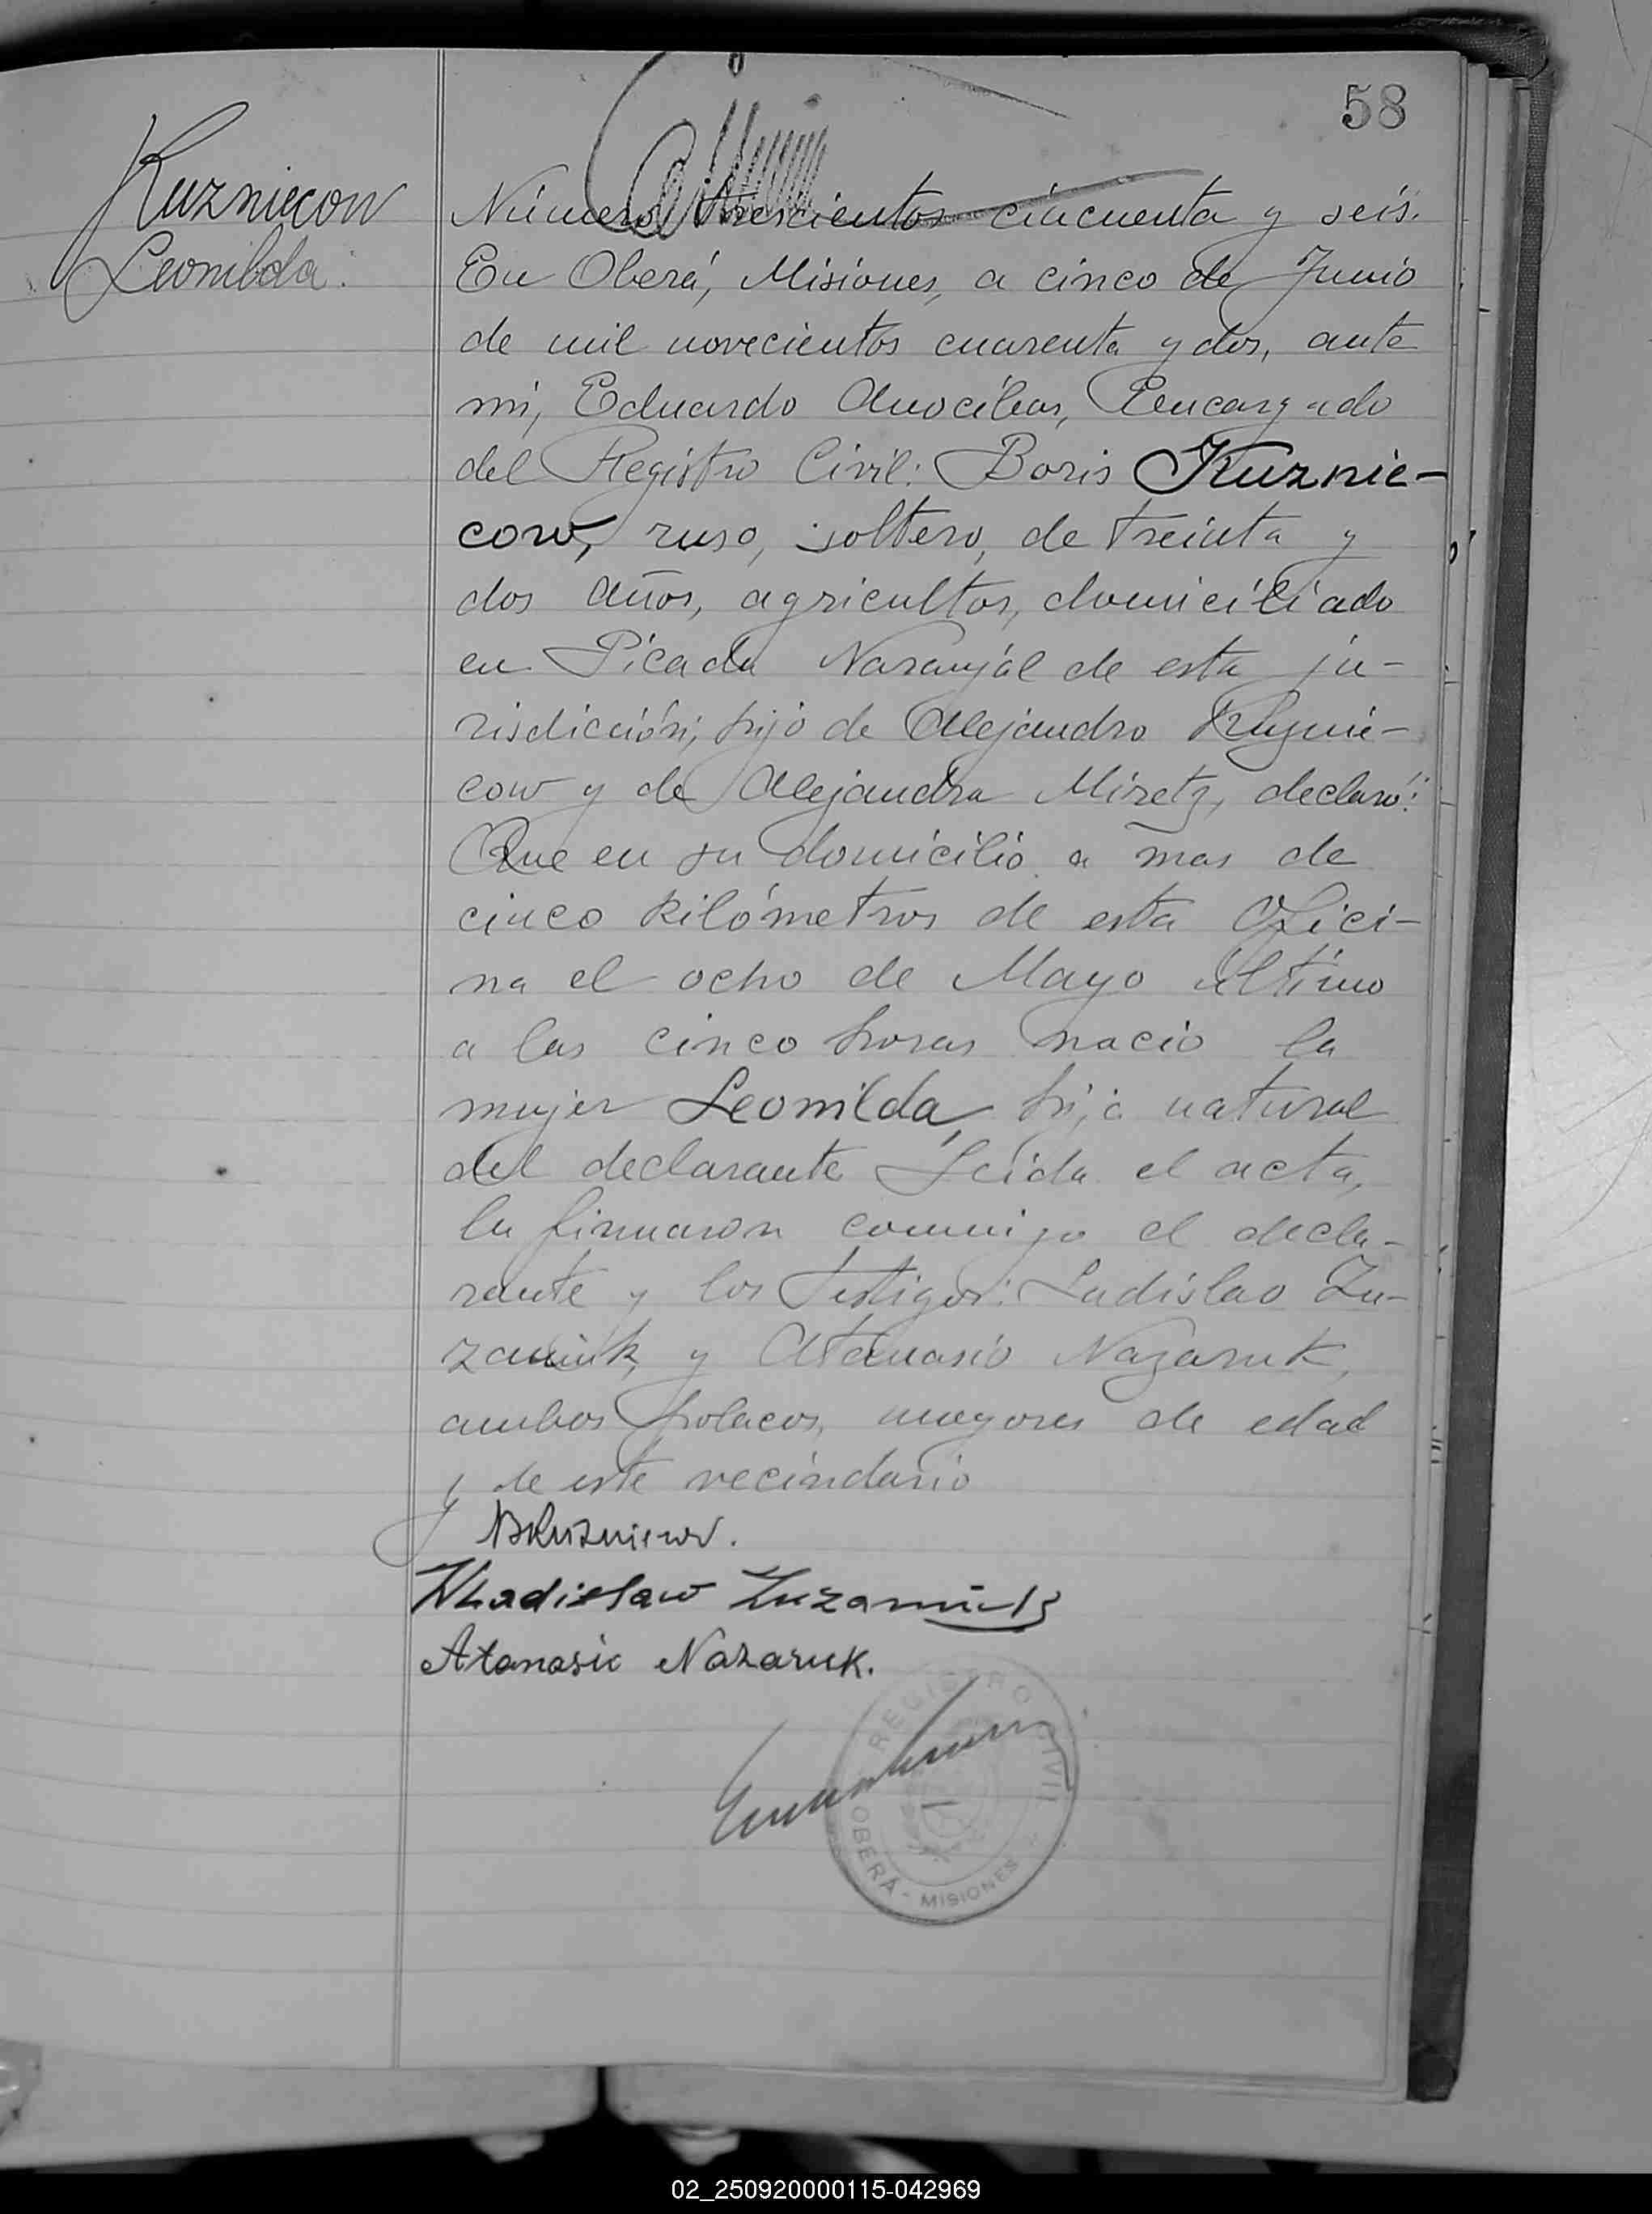 58
Kuzniecow
Leonilda.
Número trescientos cincuenta y seis.
En Oberá, Misiones, a cinco de Junio
de mil novecientos cuarenta y dos, ante
mi, Eduardo Anocibar, Encargado
del Registro Civil: Boris Kuznie-
cow, ruso, soltero, de treinta y
dos años, agricultor, domiciliado
en Picada Naranjal de esta ju-
risdicción; hijo de Alejandro Kuznie-
cow y de Alejandra Miretz, declaró:
Que en su domicilio a mas de
cinco kilómetros de esta Ofici-
na el ocho de Mayo último
a las cinco horas nació la
mujer Leonilda, hija natural
del declarante Leida el acta,
la firmaron conmigo el decla-
rante y los testigos: Ladislao Zu-
zaniuk, y Atanasio Nazaruk,
ambos polacos, mayores de edad
y de este vecindario
Wladislaw Zuzaniuk
Atanasio Nazaruk.
REGISTRO CIVIL
OBERÁ - MISIONES
02_250920000115-042969